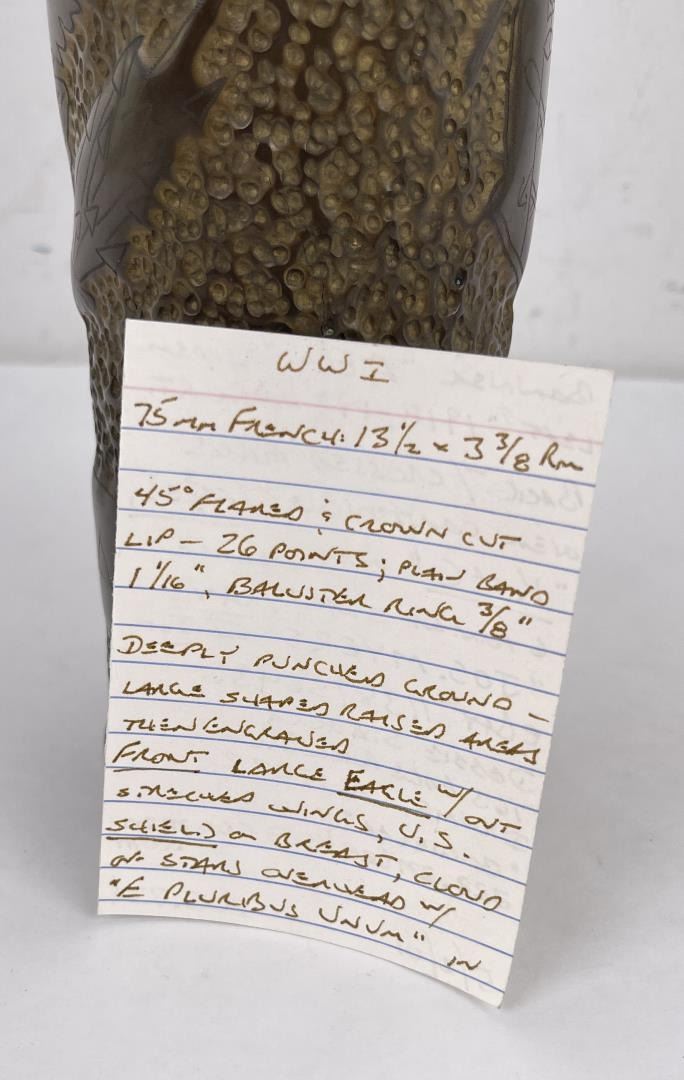 WWI
75mm FRENCH: 13 1/2 x 3 3/8 Rm
45° FLARED & CROWN CUT
LIP - 26 POINTS; PLAIN BAND
1 1/16", BALUSTER RING 3/8"
DEEPLY PUNCHED GROUND -
LARGE SHAPED RAISED AREAS
THEN ENGRAVED
FRONT LARGE EAGLE w/ OUT
STRECHED WINGS, U.S.
SHIELD on BREAST, CLOUD
OF STARS OVERHEAD w/
"E PLURIBUS UNUM" IN